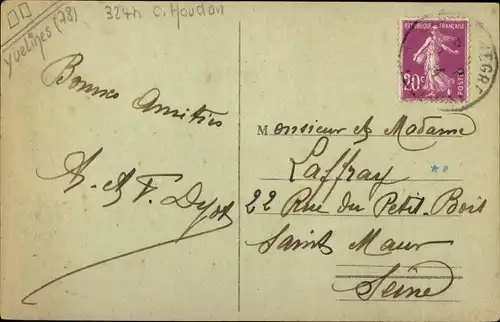 Yvelines (78)
324h C. Houdan
REPUBLIQUE FRANÇAISE
20c
POSTES
Bonnes Amitiés
Monsieur et Madame
Laffray
A. et F. Dyot
22 Rue du Petit-Bois
Saint Maur
Seine